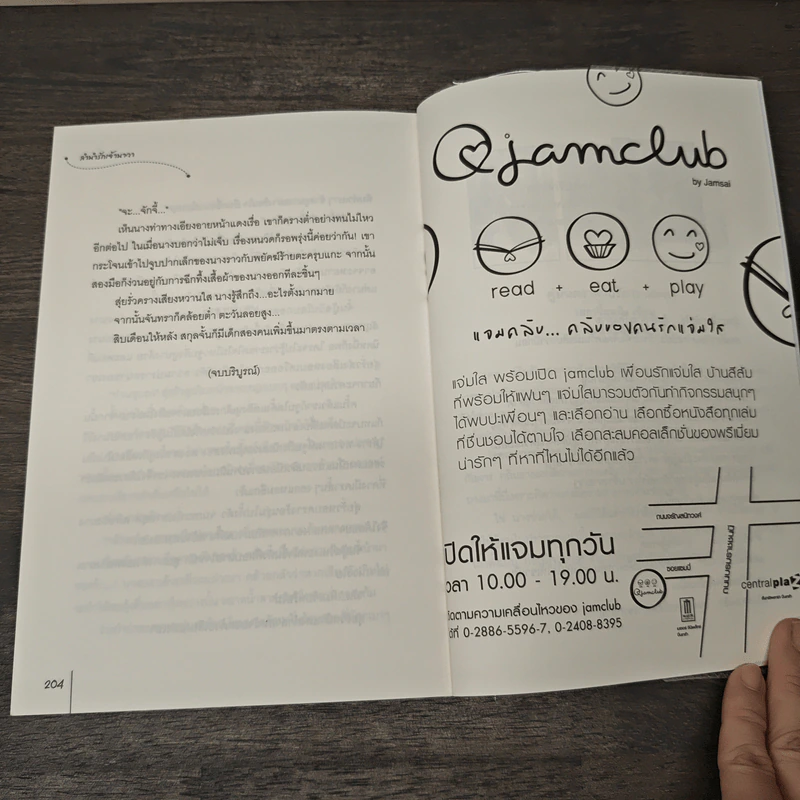 "จะ...จักจี้..."
เห็นนางทำท่าเอียงอายหน้าแดงเรื่อ เขาก็ครางต่ำอย่างทนไม่ไหว
อีกต่อไป ในเมื่อนางบอกว่าไม่เจ็บ เรื่องหนวดก็รอพรุ่งนี้ค่อยว่ากัน! เขา
กระโจนเข้าไปจูบปากเล็กของนางราวกับพยัคฆ์ร้ายตะครุบแกะ จากนั้น
สองมือก็ง่วนอยู่กับการฉีกทึ้งเสื้อผ้าของนางออกทีละชิ้นๆ
สุ่ยรั่วครางเสียงหวานใส นางรู้สึกถึง...อะไรตั้งมากมาย
จากนั้นจันทราก็คล้อยต่ำ ตะวันลอยสูง...
สิบเดือนให้หลัง สกุลจั้นก็มีเด็กสองคนเพิ่มขึ้นมาตรงตามเวลา
(จบบริบูรณ์)
204
@jamclub
by Jamsai
read + eat + play
แจมคลับ... คลับของคนรักแจ่มใส
แจ่มใส พร้อมเปิด jamclub เพื่อนรักแจ่มใส บ้านสีส้ม
ที่พร้อมให้แฟนๆ แจ่มใสมารวมตัวกันทำกิจกรรมสนุกๆ
ได้พบปะเพื่อนๆ และเลือกอ่าน เลือกซื้อหนังสือทุกเล่ม
ที่ชื่นชอบได้ตามใจ เลือกสะสมคอลเล็กชั่นของพรีเมี่ยม
น่ารักๆ ที่หาที่ไหนไม่ได้อีกแล้ว
ถนนจรัญสนิทวงศ์
ถนนบรมราชชนนี
ปิดให้แจมทุกวัน
วลา 10.00 - 19.00 น.
ซอยแซมมี่
@jamclub
centralplaz
ติดตามความเคลื่อนไหวของ jamclub
ได้ที่ 0-2886-5596-7, 0-2408-8395